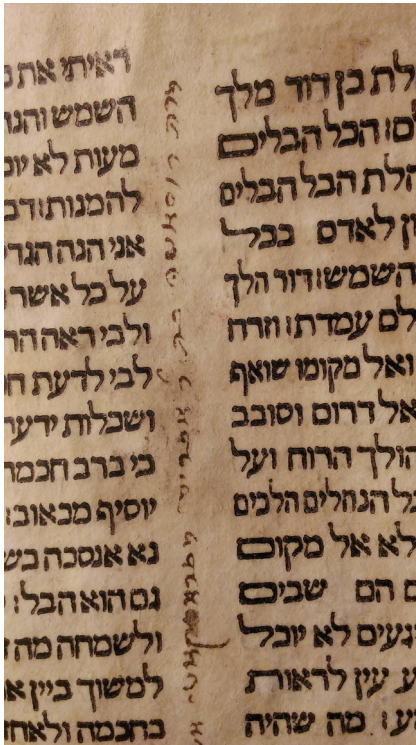 לת בן דוד מלך
ם׃ הבל הבלים
הלת הבל הבלים
לאדם בכל
השמש׃ דור הלך
לם עמדת׃ וזרח
ואל מקומו שואף
אל דרום וסובב
הולך הרוח ועל
כל הנחלים הלכים
לא אל מקום
ם הם שבים
געים לא יוכל
ע עין לראות
ע׃ מה שהיה
ראיתי את
השמש והנה
מעות לא יוכ
להמנות׃ דב
אני הנה הגד
על כל אשר
ולבי ראה הר
לבי לדעת ח
ושכלות ידע
כי ברב חכמ
יוסיף מכאוב׃
נא אנסכה בש
גם הוא הבל׃
ולשמחה מה
למשוך ביין א
בחכמה ולאחז